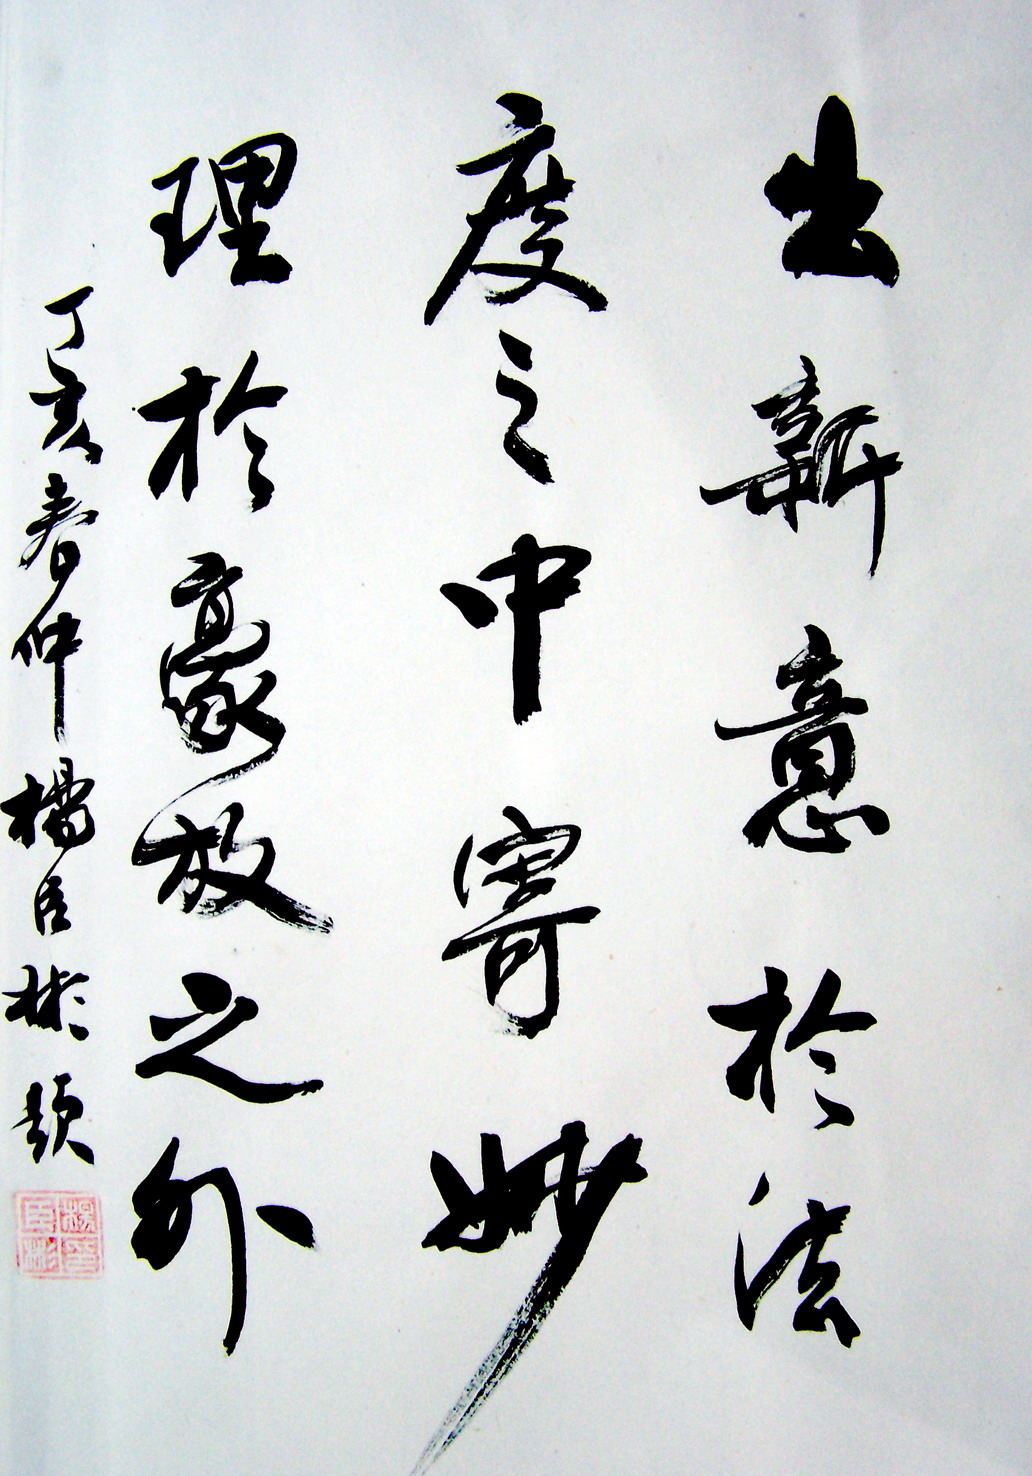 出新意於法
度之中寄妙
理於豪放之外
丁亥春仲楊臣彬題